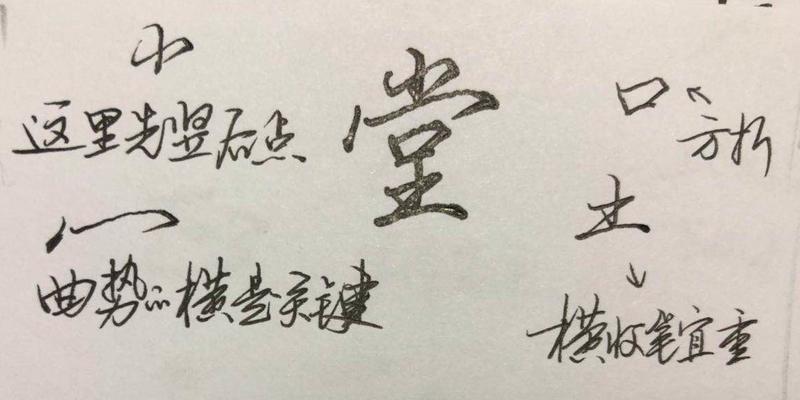 小
这里先竖后点
冖
曲势的横是关键
堂
口
方折
土
横收笔宜重